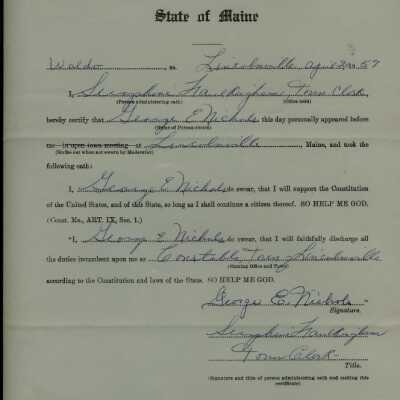 State of Maine
Waldo ss. Lincolnville, April 2, 1957
I, Seraphine Faulkingham, Town Clerk,
(Person administering oath) (Office held)
hereby certify that George E Nichols this day personally appeared before
(Name of Person sworn)
me in open town meeting at Lincolnville Maine, and took the
(Strike out when not sworn by Moderator)
following oath:
I, George E Nichols do swear, that I will support the Constitution
of the United States, and of this State, so long as I shall continue a citizen thereof. SO HELP ME GOD.
(Const. Me., ART. IX, Sec. 1.)
"I, George E Nichols do swear, that I will faithfully discharge all
the duties incumbent upon me as Constable, Town Lincolnville
(Naming Office and Town)
according to the Constitution and laws of the State. SO HELP ME GOD.
George E. Nichols "
Signature.
Seraphine Faulkingham
Town Clerk
Title.
(Signature and title of person administering oath and making this
certificate)